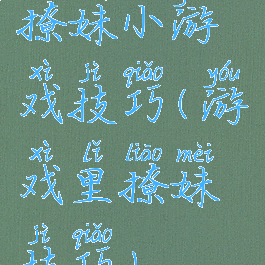 撩妹小游
xì jì qiǎo yóu
戏技巧(游
xì lǐ liāo mèi
戏里撩妹
jì qiǎo
技巧)